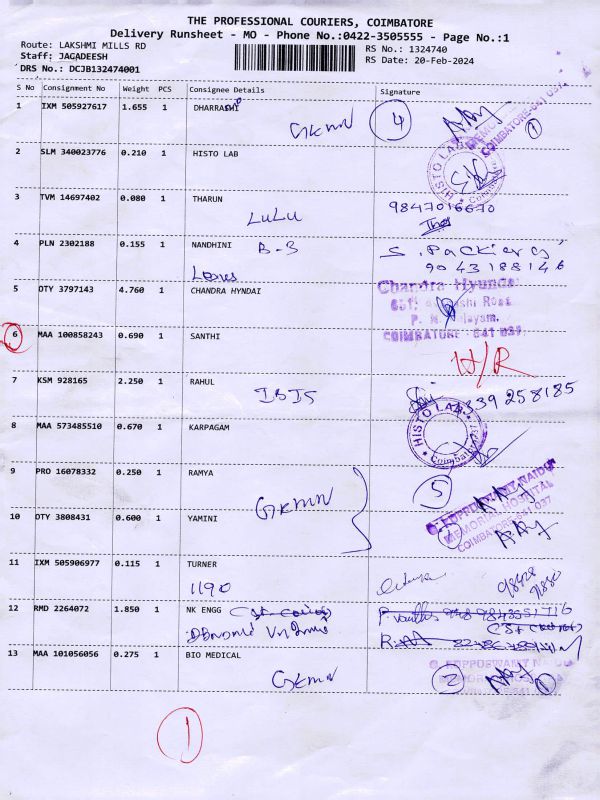 THE PROFESSIONAL COURIERS, COIMBATORE
Delivery Runsheet - MO - Phone No.:0422-3505555 - Page No.:1
Route: LAKSHMI MILLS RD
RS No.: 1324740
Staff: JAGADEESH
RS Date: 20-Feb-2024
DRS No.: DCJB132474001
S No Consignment No Weight PCS Consignee Details Signature
1 IXM 505927617 1.655 1 DHARRASHI
GKMN 4 1
COIMBATORE-641 037
2 SLM 340023776 0.210 1 HISTO LAB
HISTO LAB
3 TVM 14697402 0.080 1 THARUN 9847016670
LULU
4 PLN 2302188 0.155 1 NANDHINI B-3 S. Packiaraj
9043188146
5 OTY 3797143 4.760 1 CHANDRA HYNDAI
Chandra Hyundai
COIMBATORE - 641 037.
6 MAA 100858243 0.690 1 SANTHI
H/R
7 KSM 928165 2.250 1 RAHUL
IBIS 339258185
8 MAA 573485510 0.670 1 KARPAGAM
HISTO LAB Coimbatore
9 PRO 16078332 0.250 1 RAMYA 5
G. KUPPUSWAMY NAIDU
MEMORIAL HOSPITAL
COIMBATORE-641 037
GKMN
10 OTY 3808431 0.600 1 YAMINI
11 IXM 505906977 0.115 1 TURNER
1190
12 RMD 2264072 1.850 1 NK ENGG
13 MAA 101056056 0.275 1 BIO MEDICAL
G. KUPPUSWAMY NAIDU
GKMN 2 1
1